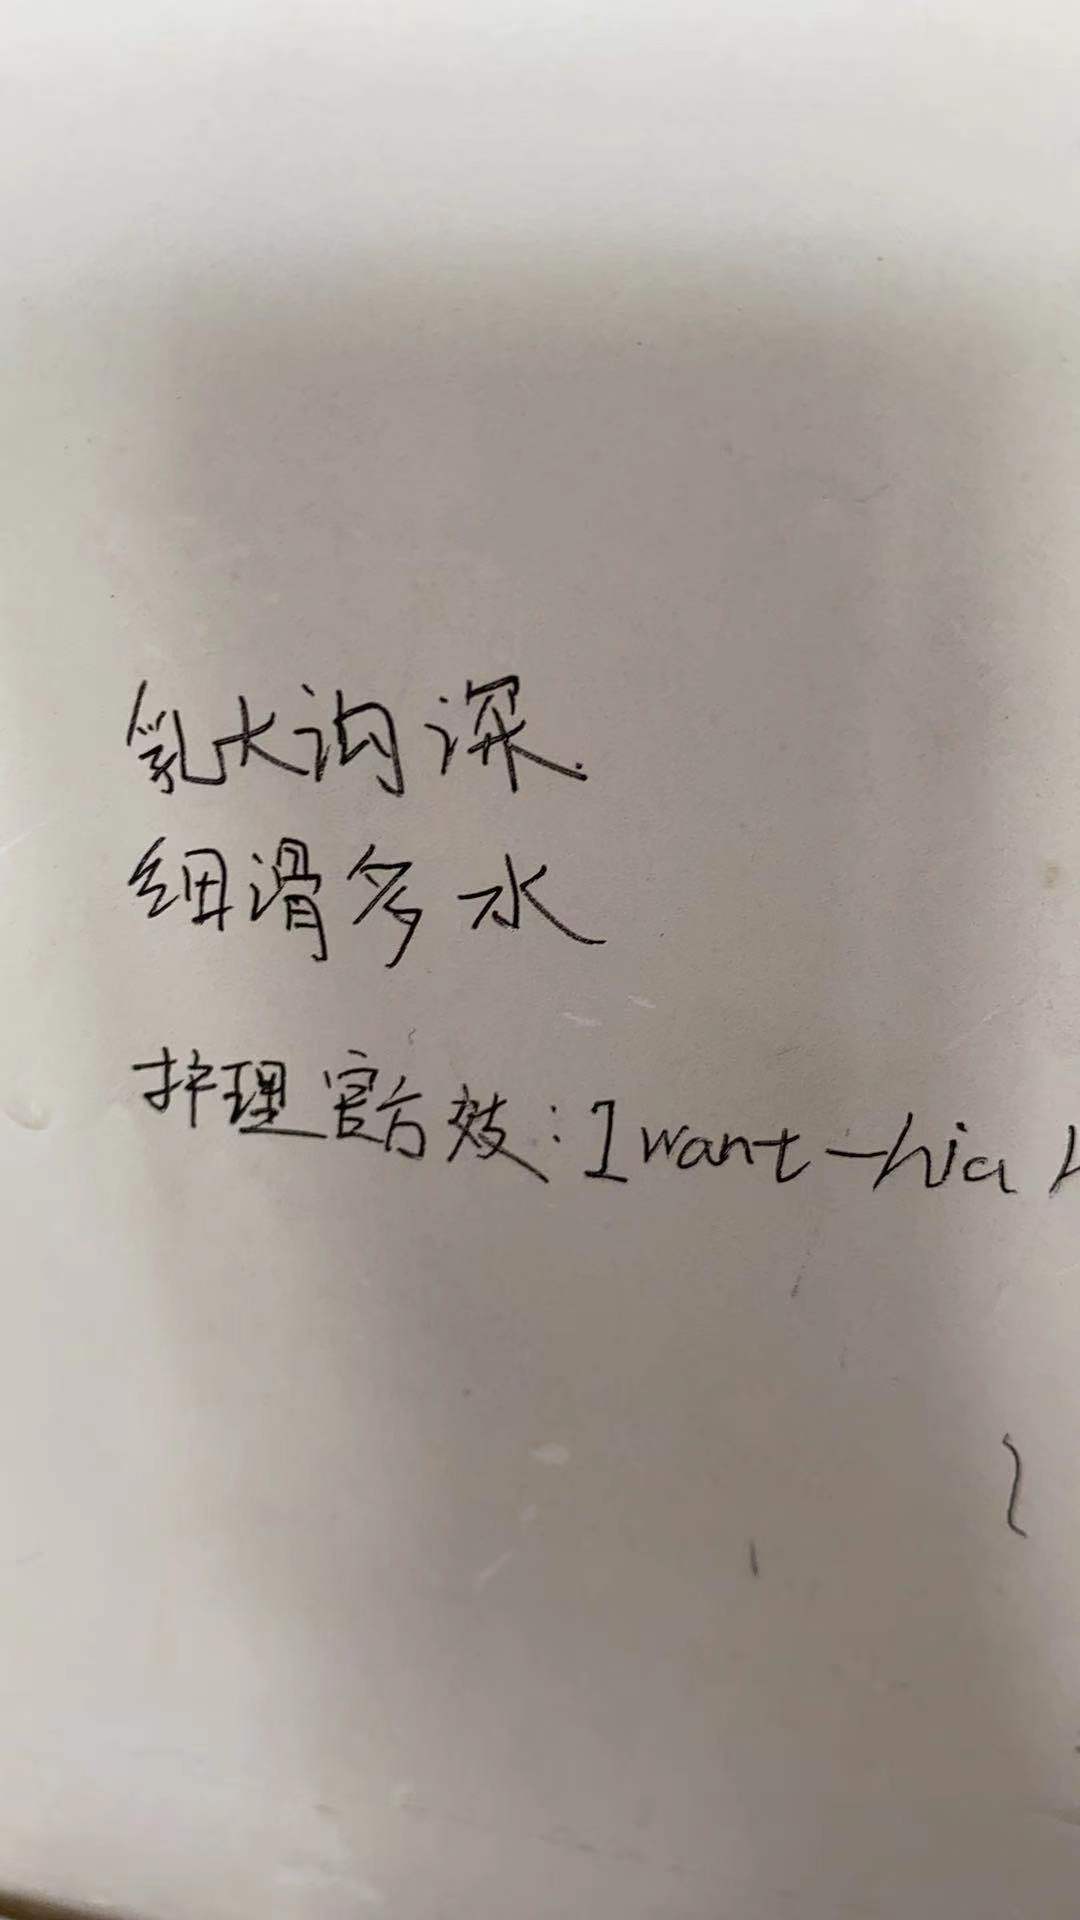 乳大沟深.
细滑多水
护理官方效: I want-hia